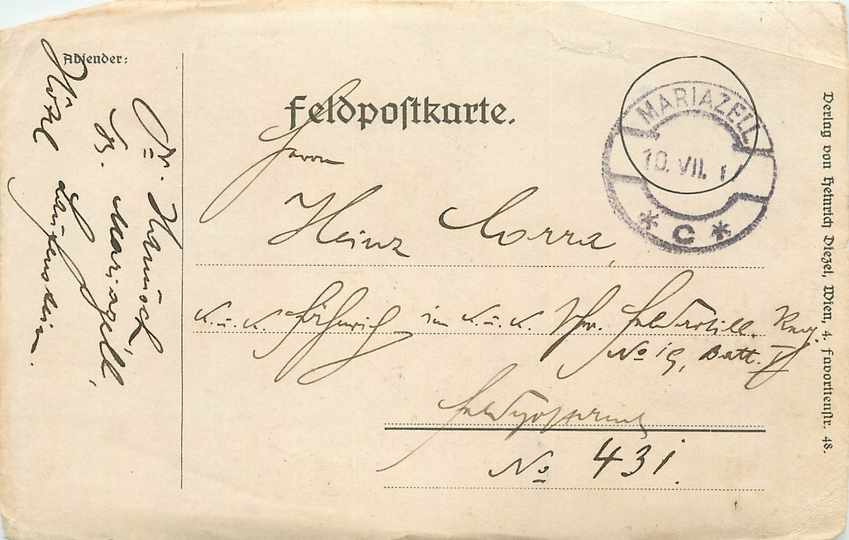 Absender:
Dr. Hanusch
Dz. Mariazell,
Hotel Laufenstein.
Feldpostkarte.
MARIAZELL
10. VII. 1
* C *
Herrn
Heinz Morra,
k. u. k. Fähnrich im k. u. k. schw. Feldartill. Reg.
No 19, Batt. II
Feldpostamt
No 431.
Verlag von Heinrich Diezel, Wien, 4. Favoritenstr. 48.